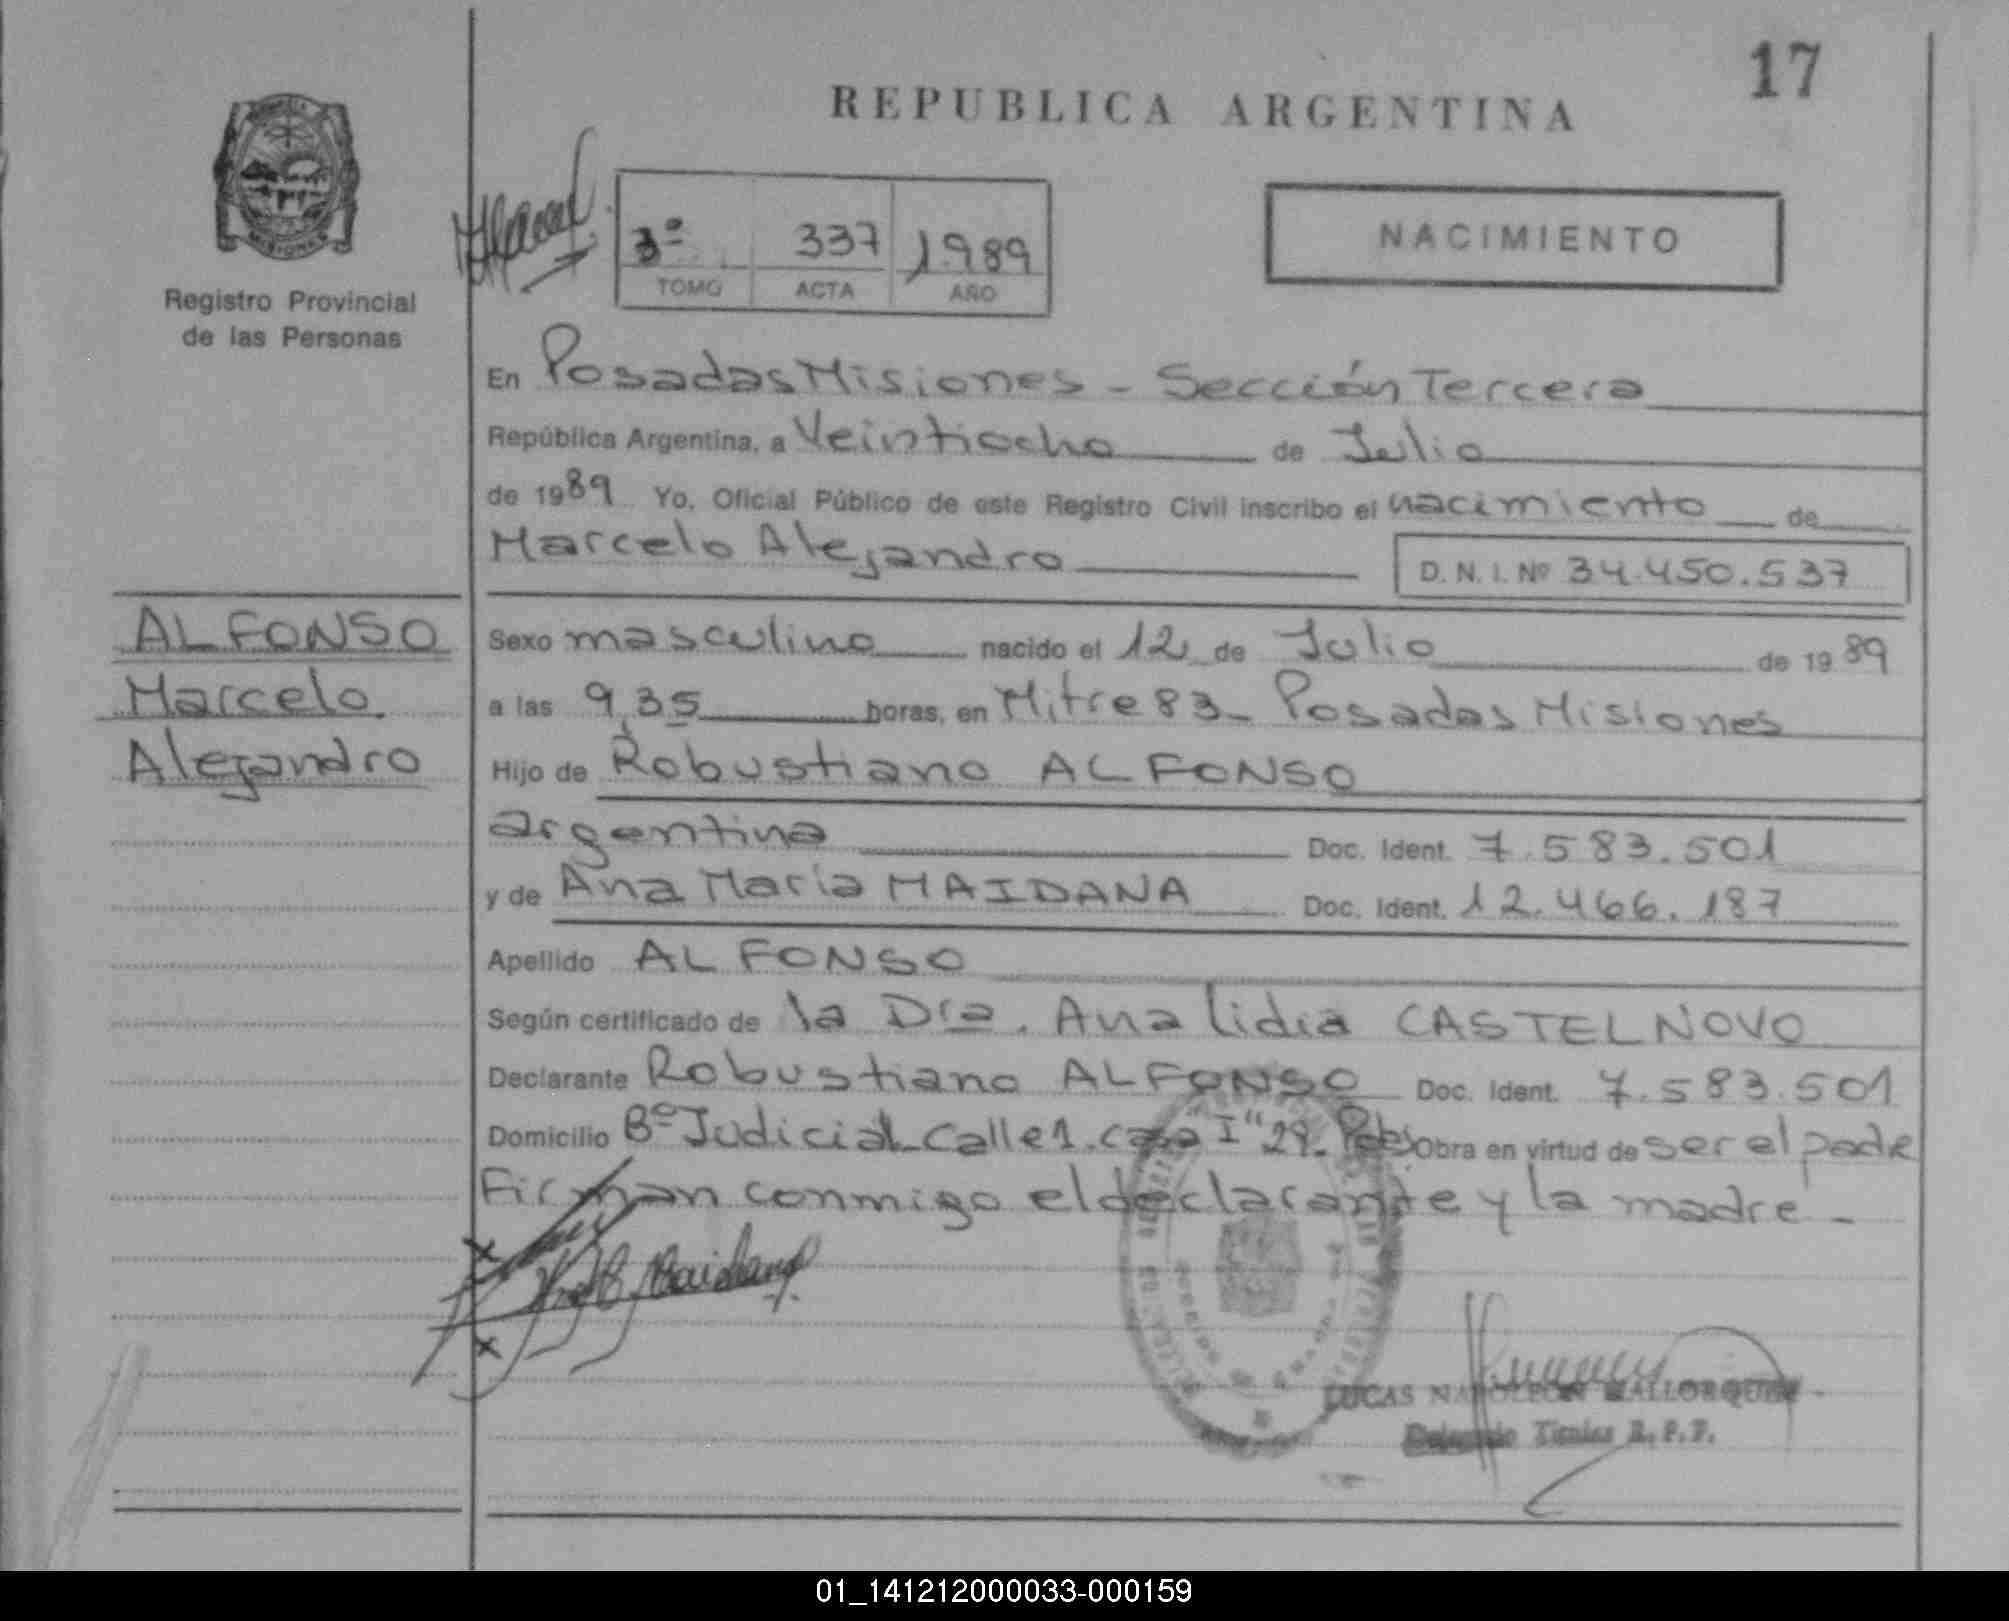 17
REPUBLICA ARGENTINA
Registro Provincial
de las Personas
3º 337 1989
TOMO ACTA AÑO
NACIMIENTO
En Posadas Misiones - Sección Tercera
República Argentina, a Veintiocho de Julio
de 1989 Yo, Oficial Público de este Registro Civil inscribo el nacimiento de
Marcelo Alejandro D. N. I. Nº 34.450.537
ALFONSO
Marcelo
Alejandro
Sexo masculino nacido el 12 de Julio de 1989
a las 9,35 horas, en Mitre 83 - Posadas Misiones
Hijo de Robustiano ALFONSO
argentina Doc. Ident. 7.583.501
y de Ana María MAIDANA Doc. Ident. 12.466.187
Apellido ALFONSO
Según certificado de la Dra. Ana lidia CASTELNOVO
Declarante Robustiano ALFONSO Doc. Ident. 7.583.501
Domicilio Bº Judicial Calle 1. casa "I" 29. Obra en virtud de ser el padre
Firman conmigo el declarante y la madre -
Maidana
LUCAS NAPOLEON MALLORQUIN
Delegado Titular R. P. P.
01_141212000033-000159